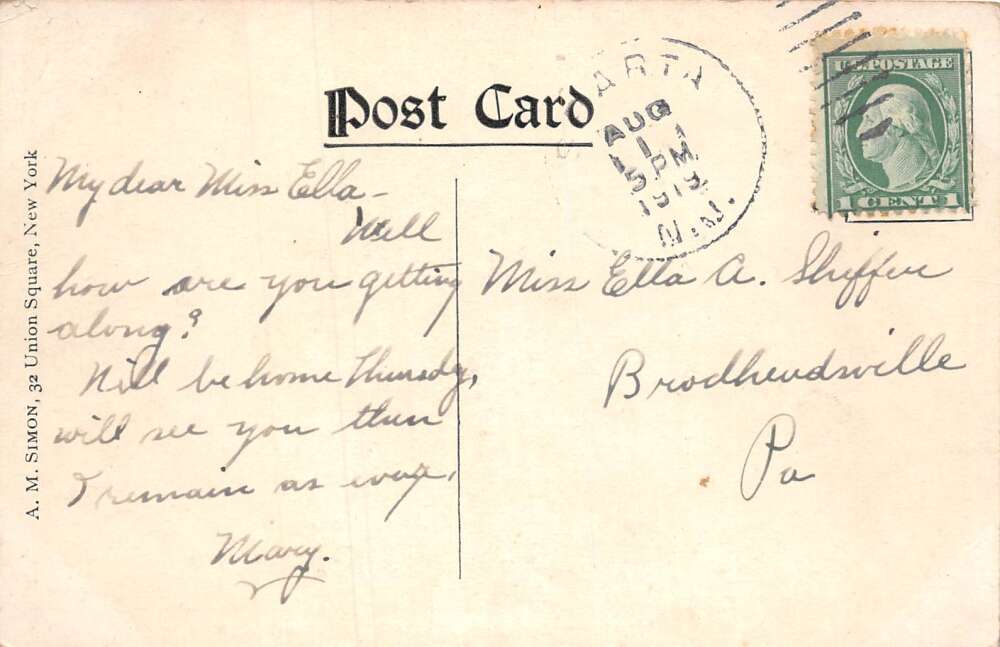 Post Card
A. M. SIMON, 32 Union Square, New York
ARTA
AUG
11
5 PM
1913
N.J.
U.S. POSTAGE
1 CENT 1
My dear Miss Ella -
Well
how are you getting
along?
Will be home Thursday,
will see you then
I remain as ever,
Mary.
Miss Ella A.
Brodheadsville
Pa